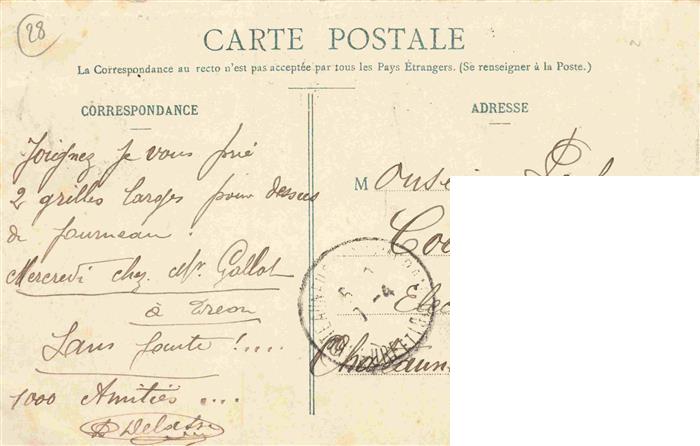 28
CARTE POSTALE
La Correspondance au recto n'est pas acceptée par tous les Pays Étrangers. (Se renseigner à la Poste.)
CORRESPONDANCE
ADRESSE
Joignez je vous prie
2 grilles larges pour dessus
de fourneau.
Mercredi chez Mr Gallot
à Dreon
Sans faute !....
1000 Amitiés ....
Monsie
Coc
Elec
Chateaun
7 -4
EURE